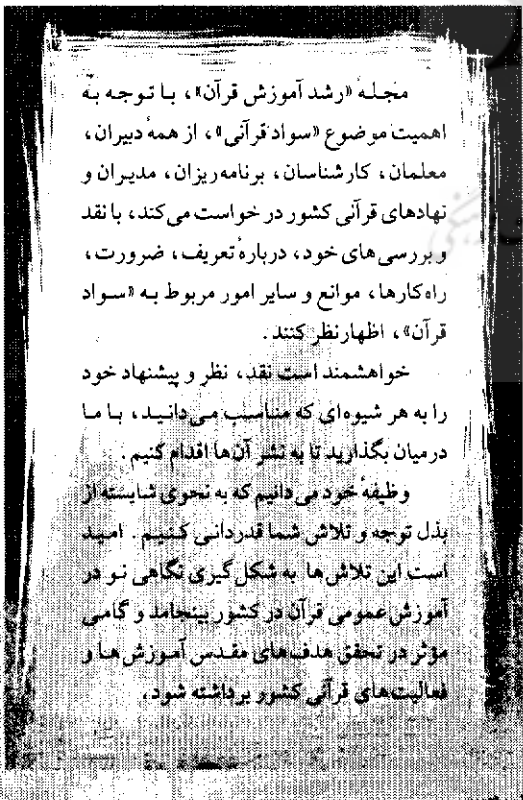 مجلهٔ «رشد آموزش قرآن»، با توجه به
اهمیت موضوع «سواد قرآنی»، از همهٔ دبیران،
معلمان، کارشناسان، برنامه‌ریزان، مدیران و
نهادهای قرآنی کشور درخواست می‌کند، با نقد
و بررسی‌های خود، دربارهٔ تعریف، ضرورت،
راه‌کارها، موانع و سایر امور مربوط به «سواد
قرآن»، اظهارنظر کنند.
خواهشمند است نقد، نظر و پیشنهاد خود
را به هر شیوه‌ای که مناسب می‌دانید، با ما
درمیان بگذارید تا به نشر آن‌ها اقدام کنیم.
وظیفهٔ خود می‌دانیم که به نحوی شایسته از
بذل توجه و تلاش شما قدردانی کنیم. امید
است این تلاش‌ها به شکل‌گیری نگاهی نو در
آموزش عمومی قرآن در کشور بینجامد و گامی
مؤثر در تحقق هدف‌های مقدس آموزش‌ها و
فعالیت‌های قرآنی کشور برداشته شود.